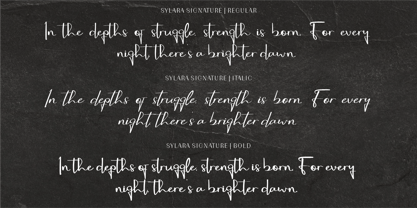 SYLARA SIGNATURE | REGULAR
In the depths of struggle, strength is born. For every
night, there's a brighter dawn.
SYLARA SIGNATURE | ITALIC
In the depths of struggle, strength is born. For every
night, there's a brighter dawn.
SYLARA SIGNATURE | BOLD
In the depths of struggle, strength is born. For every
night, there's a brighter dawn.